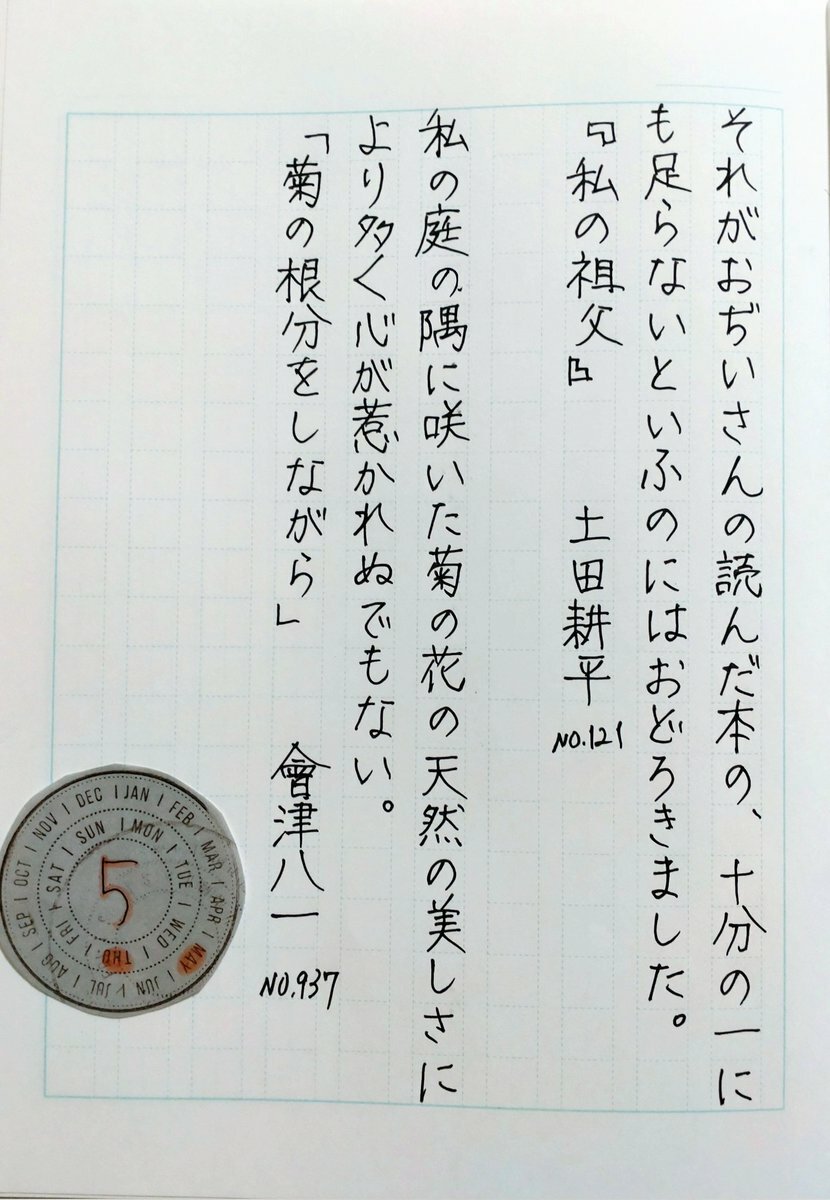 それがおぢいさんの読んだ本の、十分の一に
も足らないといふのにはおどろきました。
『私の祖父』 土田耕平 NO.121
私の庭の隅に咲いた菊の花の天然の美しさに
より多く心が惹かれぬでもない。
「菊の根分をしながら」 會津八一 NO.937
JAN FEB MAR APR MAY JUN JUL AUG SEP OCT NOV DEC
SUN MON TUE WED THU FRI SAT
5